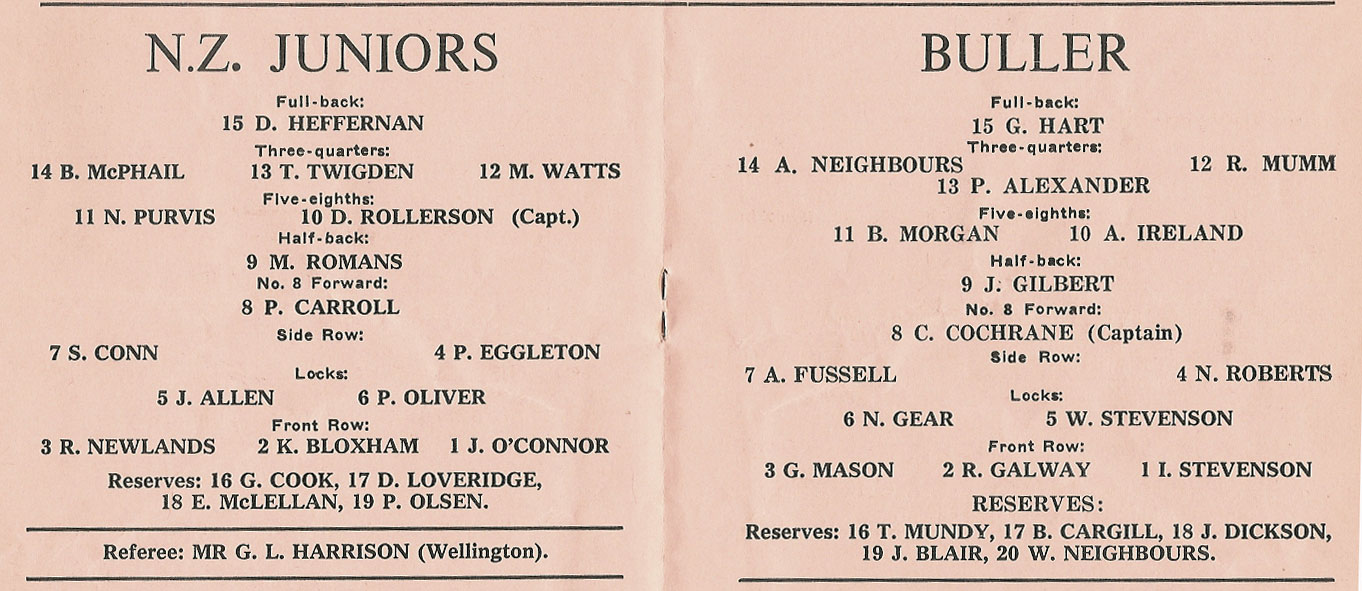 N.Z. JUNIORS
Full-back:
15 D. HEFFERNAN
Three-quarters:
14 B. McPHAIL 13 T. TWIGDEN 12 M. WATTS
Five-eighths:
11 N. PURVIS 10 D. ROLLERSON (Capt.)
Half-back:
9 M. ROMANS
No. 8 Forward:
8 P. CARROLL
Side Row:
7 S. CONN 4 P. EGGLETON
Locks:
5 J. ALLEN 6 P. OLIVER
Front Row:
3 R. NEWLANDS 2 K. BLOXHAM 1 J. O'CONNOR
Reserves: 16 G. COOK, 17 D. LOVERIDGE,
18 E. McLELLAN, 19 P. OLSEN.
Referee: MR G. L. HARRISON (Wellington).
BULLER
Full-back:
15 G. HART
Three-quarters:
14 A. NEIGHBOURS 12 R. MUMM
13 P. ALEXANDER
Five-eighths:
11 B. MORGAN 10 A. IRELAND
Half-back:
9 J. GILBERT
No. 8 Forward:
8 C. COCHRANE (Captain)
Side Row:
7 A. FUSSELL 4 N. ROBERTS
Locks:
6 N. GEAR 5 W. STEVENSON
Front Row:
3 G. MASON 2 R. GALWAY 1 I. STEVENSON
RESERVES:
Reserves: 16 T. MUNDY, 17 B. CARGILL, 18 J. DICKSON,
19 J. BLAIR, 20 W. NEIGHBOURS.